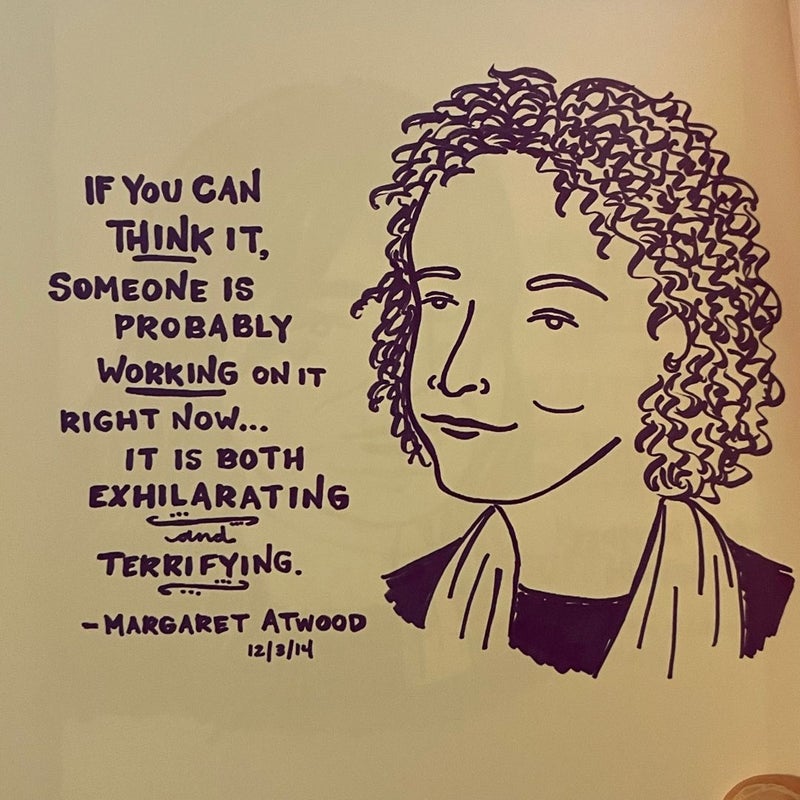 IF YOU CAN
THINK IT,
SOMEONE IS
PROBABLY
WORKING ON IT
RIGHT NOW...
IT IS BOTH
EXHILARATING
and
TERRIFYING.
-MARGARET ATWOOD
12/3/14